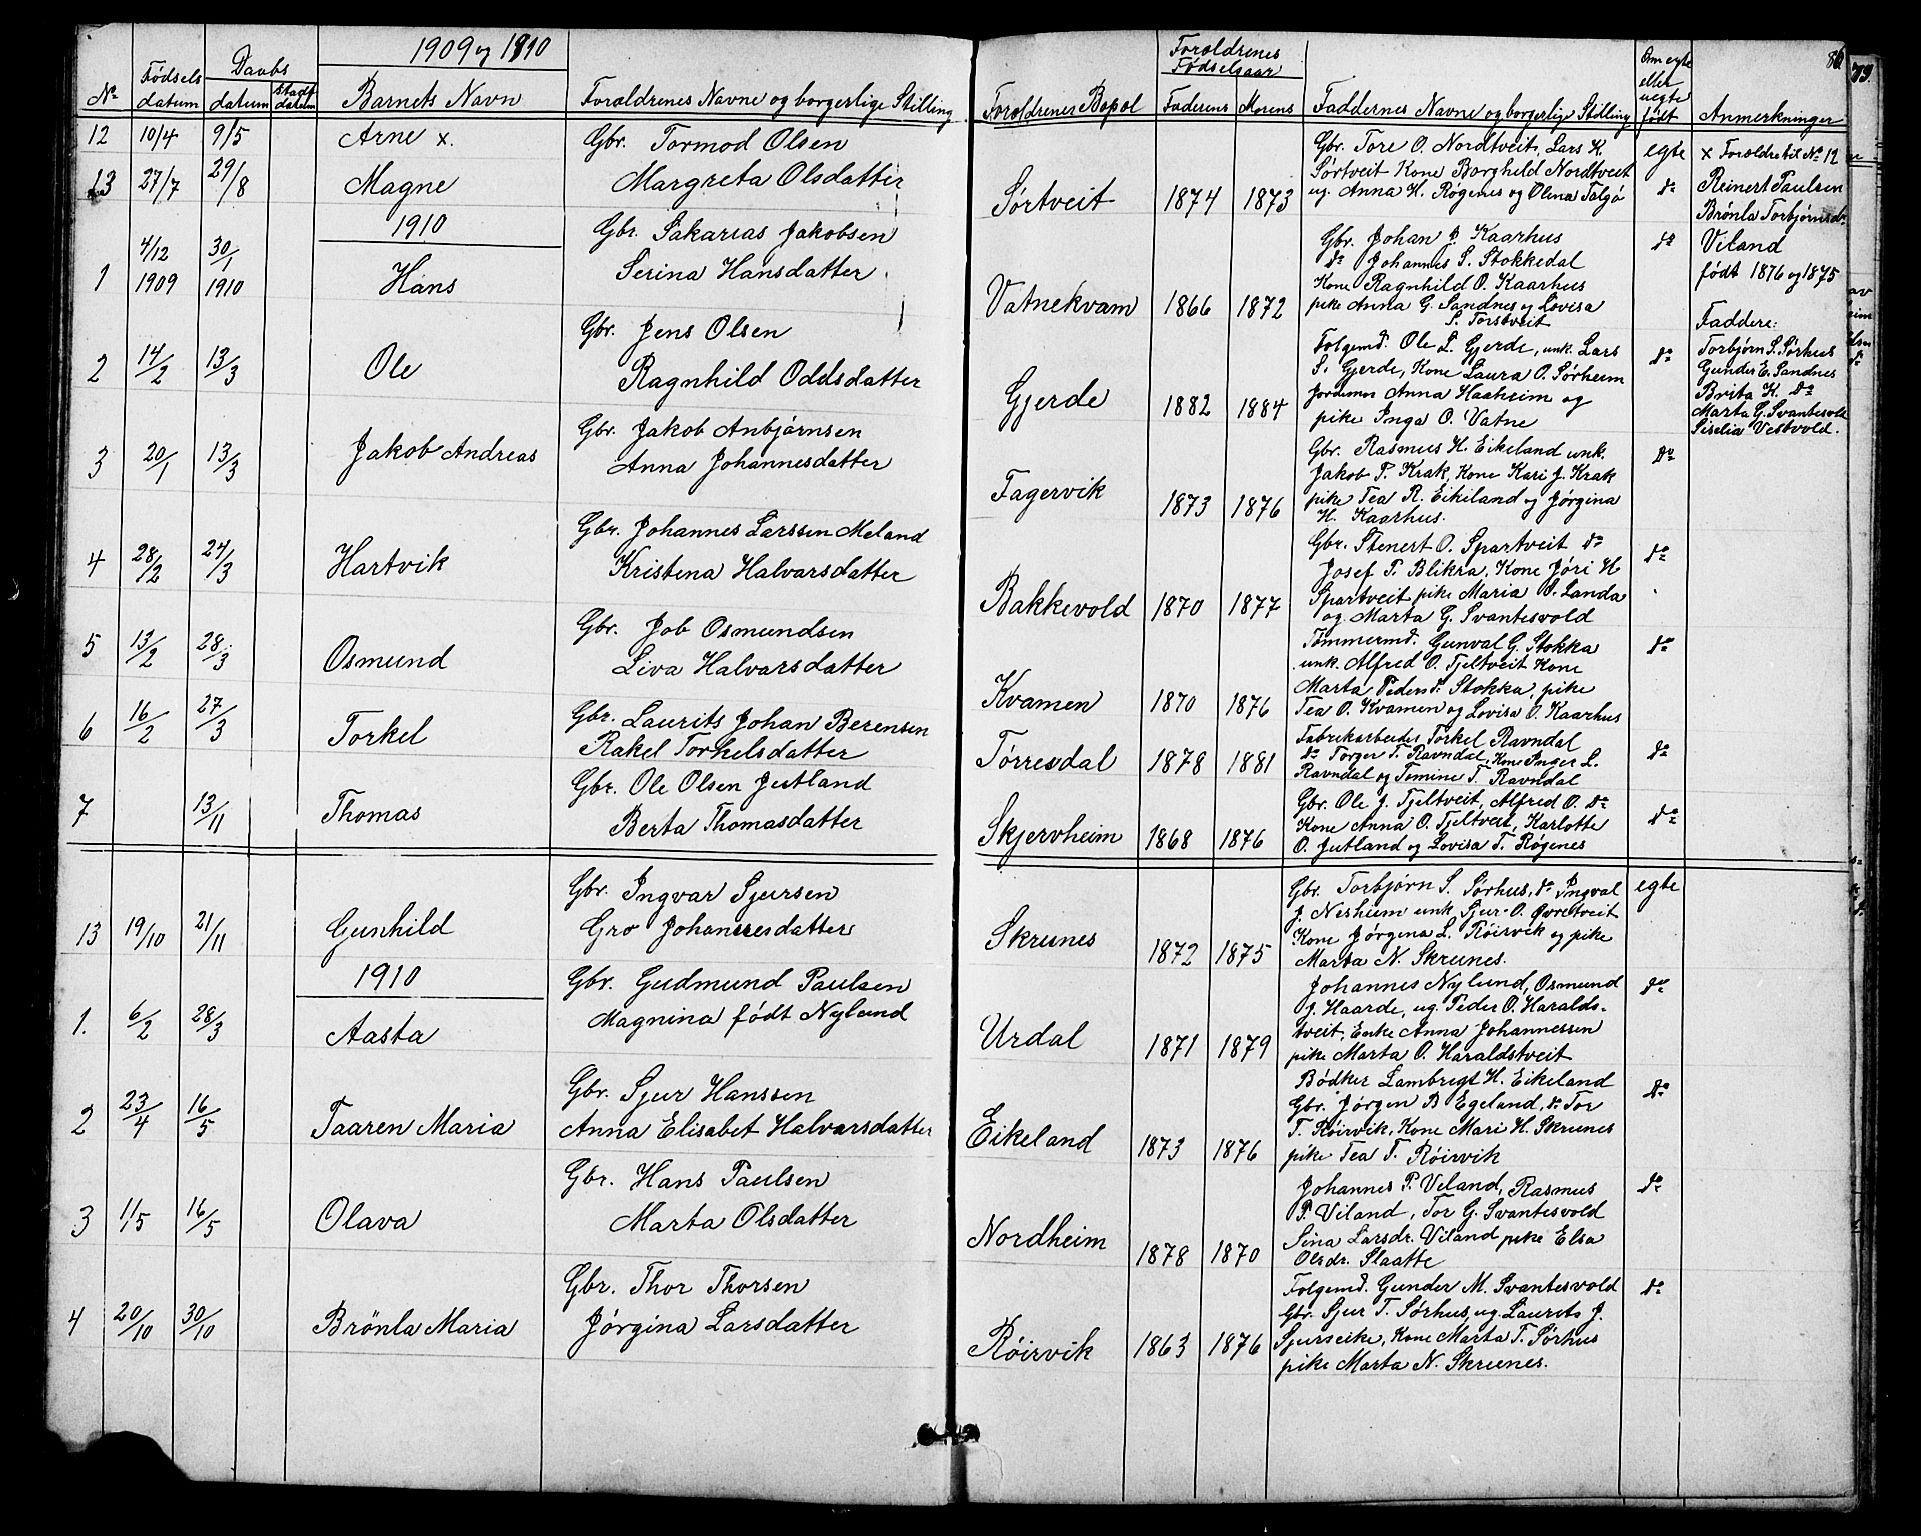 1909 og 1910
No
Fødsels datum
Daabs datum
Stadf. datum
Barnets Navn
Forældrenes Navne og borgerlige Stilling
12 10/4 9/5 Arne x.
13 27/7 29/8 Magne
Gbr. Tormod Olsen
Margreta Olsdatter
1910
1 4/12 1909 30/1 1910 Hans
Gbr. Sakarias Jakobsen
Serina Hansdatter
2 14/2 13/3 Ole
Gbr. Jens Olsen
Ragnhild Oddsdatter
3 20/1 13/3 Jakob Andreas
Gbr. Jakob Anbjørnsen
Anna Johannesdatter
4 28/2 24/3 Hartvik
Gbr. Johannes Larssen Meland
Kristena Halvarsdatter
5 13/2 28/3 Osmund
Gbr. Job Osmundsen
Liva Halvarsdatter
6 16/2 27/3 Torkel
Gbr. Laurits Johan Berensen
Rakel Torkelsdatter
7 13/11 Thomas
Gbr. Ole Olsen Jutland
Berta Thomasdatter
13 19/10 21/11 Gunhild
Gbr. Ingvar Sjursen
Gro Johannesdatter
1910
1. 6/2 28/3 Aasta
Gbr. Gudmund Paulsen
Magnina født Nylund
2 23/4 16/5 Taaren Maria
Gbr. Sjur Hanssen
Anna Elisabet Halvarsdatter
3 1/5 16/5 Olava
Gbr. Hans Paulsen
Marta Olsdatter
4 20/10 30/10 Brönla Maria
Gbr. Thor Thorsen
Jørgina Larsdatter
86
79.
Forældrenes Bopæl
Forældrenes Fødselsaar
Faderens
Morens
Faddernes Navne og borgerlige Stilling
Om egte eller uegte født
Anmerkninger
Sørtveit 1874 1873
Gbr. Tore O. Nordtveit, Lars K.
Sørtveit Kone Borghild Nordtveit
ug. Anna H. Røgenes og Olena Talgø
egte
do
x Forældre til No 12
Reinert Paulsen
Brönla Torbjørnsdr.
Viland
født 1876 og 1875
Vatnekvam 1866 1872
Gbr. Johan J. Kaarhus
do Johannes S. Stokkedal
Kone Ragnhild O. Kaarhus
pike Anna G. Sandnes og Lovisa
S. Torstveit
do
Faddere:
Torbjørn S. Sørhus
Gunder E. Sandnes
Brita K. do
Marta G. Svantesvold
Siselia Vestvold.
Gjerde 1882 1884
Folgemd. Ole L. Gjerde, unk. Lars
S. Gjerde, Kone Laura O. Sørheim
Jordemor Anna Haaheim og
pike Inga O. Vatne
do
Fagervik 1873 1876
Gbr. Rasmus H. Eikeland unk.
Jakob P. Krak, Kone Kari J. Krak
pike Tea R. Eikiland og Jørgina
H. Kaarhus.
do
Bakkevold 1870 1877
Gbr. Stenert O. Spartveit do
Josef P. Blikra, Kone Jóri H.
Spartveit pike Maria O. Landa
og Marta G. Svantesvold
do
Kvamen 1870 1876
Tømmermd. Gunval G. Stokka
unk. Alfred O. Tjeltveit Kone
Marta Pedersd. Stokka, pike
Tea O. Kvamen og Lovisa O. Kaarhus
do
Tørresdal 1878 1881
Fabrikarbeider Torkel Ravndal
do Torger T. Ravndal, Kone Inger L.
Ravndal og Tomine T. Ravndal
do
Skjervheim 1868 1876
Gbr. Ole J. Tjeltveit, Alfred O. do
Kone Anna O. Tjeltveit, Karlotte
O. Jutland og Lovisa T. Røgenes
do
Skrunes 1872 1875
Gbr. Torbjørn S. Sørhus, do Ingval
J. Nesheim unk. Sjur O. Øvretveit
Kone Jørgina L. Röirvik og pike
Marta N. Skrunes.
egte
Urdal 1871 1879
Johannes Nylund, Osmund
J. Haarde, ug. Peder O. Haralds-
tveit, Enke Anna Johannessen
pike Marta O. Haraldstveit
do
Eikeland 1873 1876
Bødker Lambregt H. Eikeland
Gbr. Jørgen B Egeland, do Tor
T. Röirvik, Kone Mari H. Skrunes
pike Tea T. Röirvik
do
Nordheim 1878 1870
Johannes P. Veland, Rasmus
P. Viland, Tor G. Svantesvold
Sina Larsdr. Viland pike Elsa
Olsdr. Slaatte
do
Röirvik 1863 1876
Folgemd. Gunder M. Svantesvold
Gbr. Sjur T. Sørhus, ug. Laurits J.
Sjurseike, Kone Marta T. Sørhus
pike Marta N. Skrunes.
do